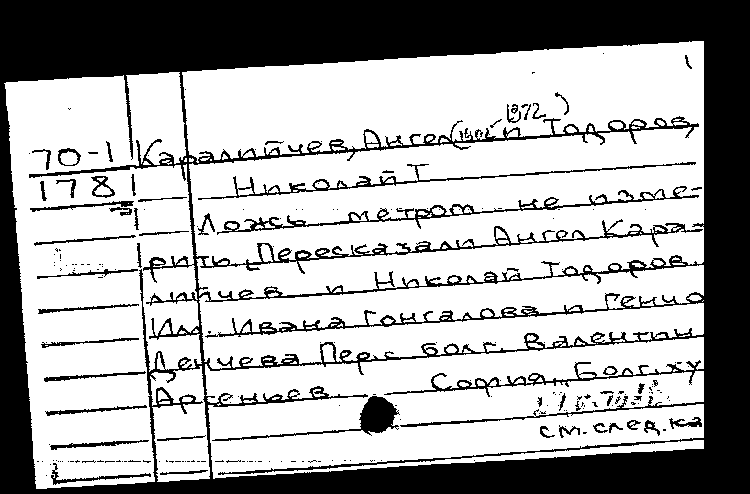 1972
70-1 Каралийчев, Ангел (1902- ) и Тодоров,
1781 Николай Т
Ложь метром не изме-
рить. Пересказали Ангел Кара-
лийчев и Николай Тодоров.
Ил. Ивана Гонгалова и Генчо
Денчева Пер. с болг. Валентин
Арсеньев. София, "Болг. ху
см. след. ка